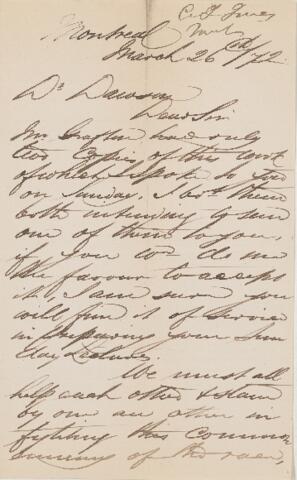 Montreal
March 26 /72
Dr Dawson
Dear Sir
Mr Grafton had only
two Copies of this work
of which I spoke to you
on Sunday. I bot them
both intending to send
one of them to you,
if you wd do me
the favour to accept
it, I am sure you
will find it of service
in preparing your Sun
day Lecture.
We must all
help each other & stand
by one an other in
fighting this Common
enemy of the race,